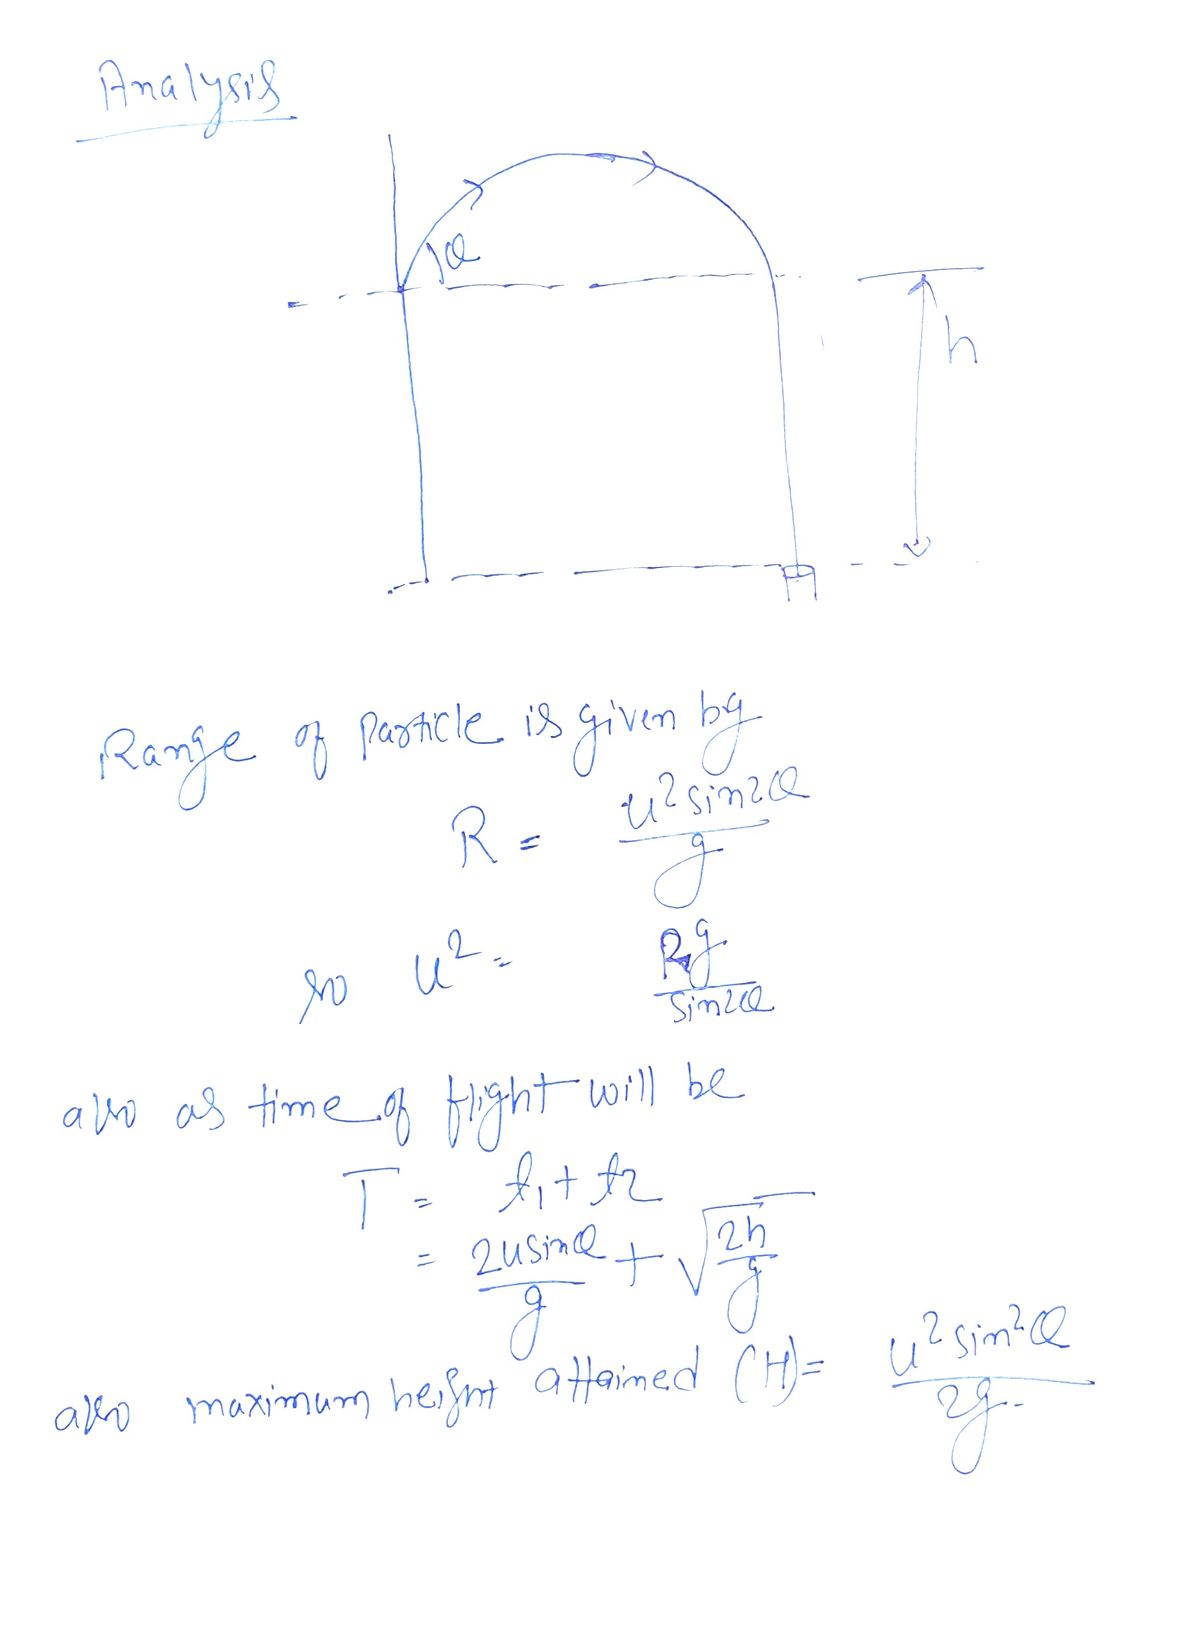 Analysis
θ
h
Range of particle is given by
R = u² sin2θ / g
so u² = Rg / sin2θ
also as time of flight will be
T = t₁ + t₂
= 2u sinθ / g + √(2h / g)
also maximum height attained (H) = u² sin²θ / 2g.